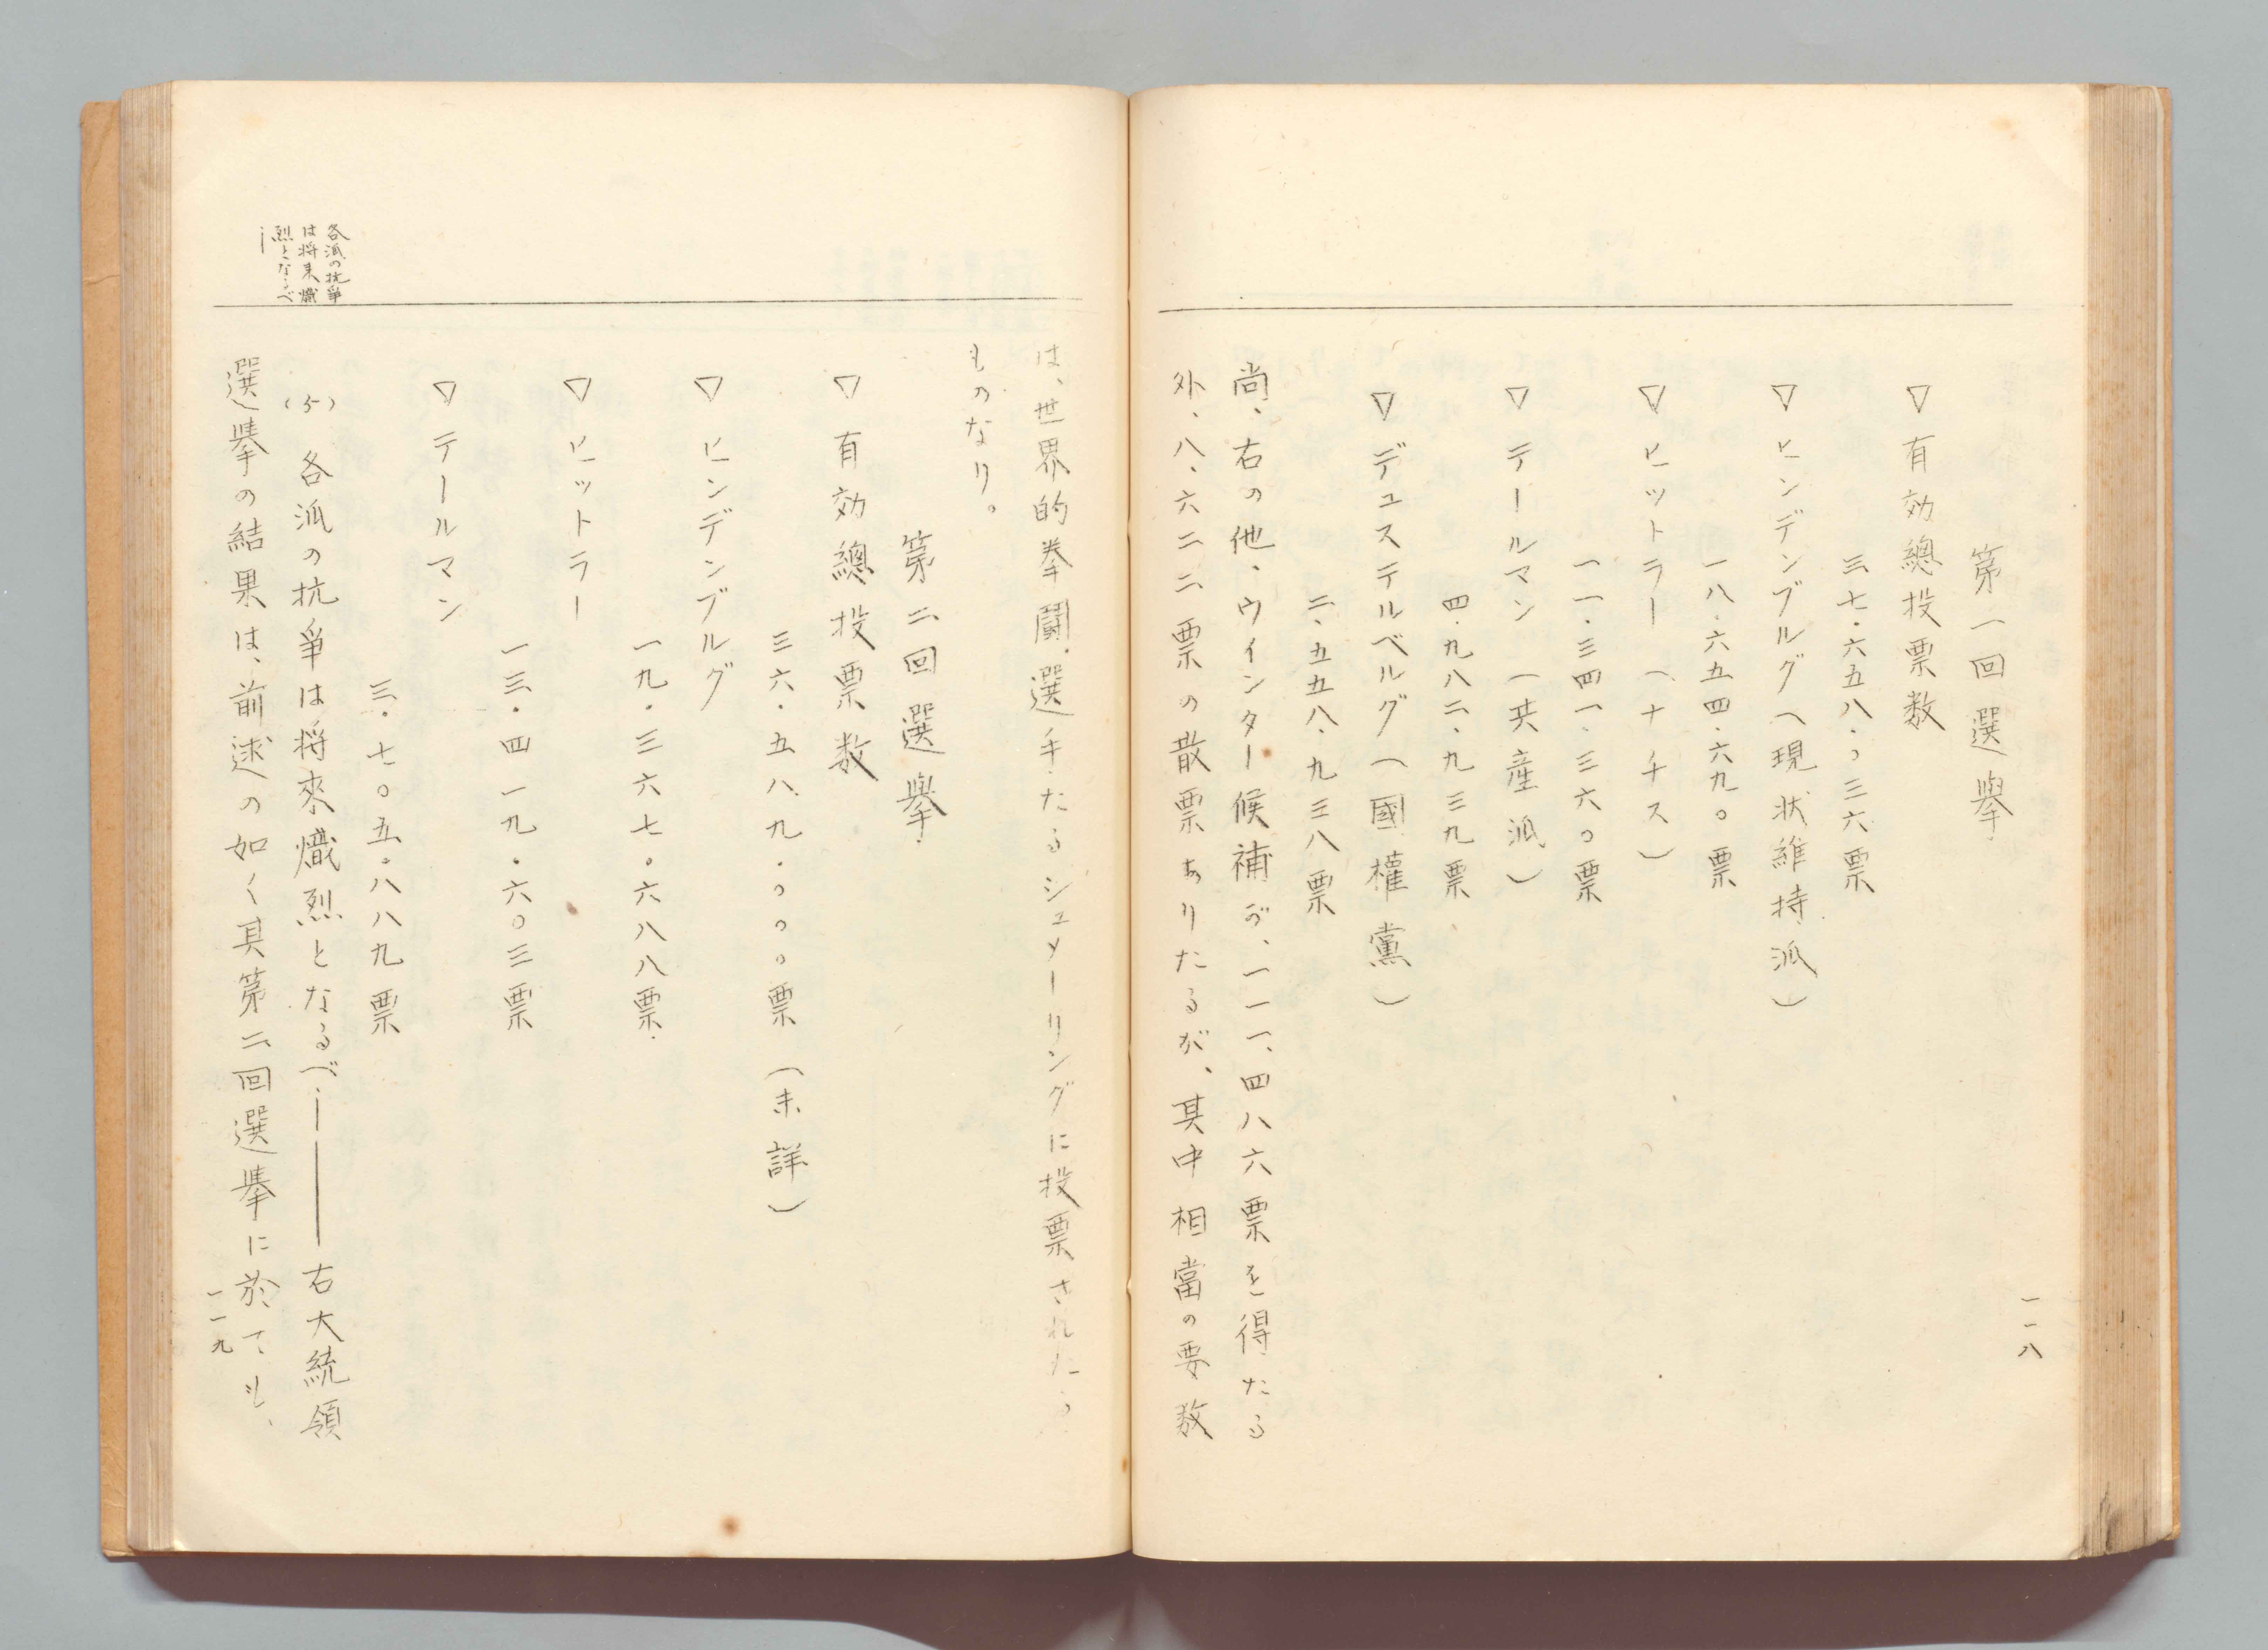 一一八
第一回選擧
▽有効總投票数
三七・六五八・〇三六票
▽ヒンデンブルグ(現状維持派)
一八・六五四・六九〇票
▽ヒットラー(ナチス)
一一・三四一・三六〇票
▽テールマン(共産派)
四・九八二、九三九票
▽デュステルベルグ(國權黨)
二、五五八・九三八票
尚、右の他、ウインター候補が、一一一、四八六票を得たる
外、八、六二二票の散票ありたるが、其中相當の要数
は、世界的拳闘選手たるシュメーリングに投票されたる
ものなり。
第二回選擧
▽有効總投票数
三六・五八九・〇〇〇票(未詳)
▽ヒンデンブルグ
一九・三六七・六八八票
▽ヒットラー
一三・四一九・六〇三票
▽テールマン
三・七〇五・八八九票
(5)各派の抗爭は将來熾烈となるべし――右大統領
選擧の結果は、前述の如く其第二回選擧に於ても、
各派の抗爭
は将来熾
烈となるべ
し
一一九